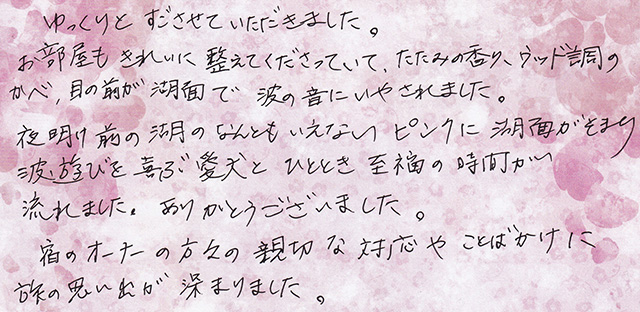 ゆっくりと すごさせていただきました。
お部屋も きれいに 整えてくださっていて、たたみの香り、ウッド調の
かべ、目の前が 湖面で 波の音に いやされました。
夜明け前の湖のなんともいえない ピンクに 湖面がそまり
波遊びを 喜ぶ 愛犬と ひととき 至福の時間が
流れました。ありがとうございました。
宿のオーナーの方々の 親切な 対応や ことばかけに
旅の思い出が 深まりました。